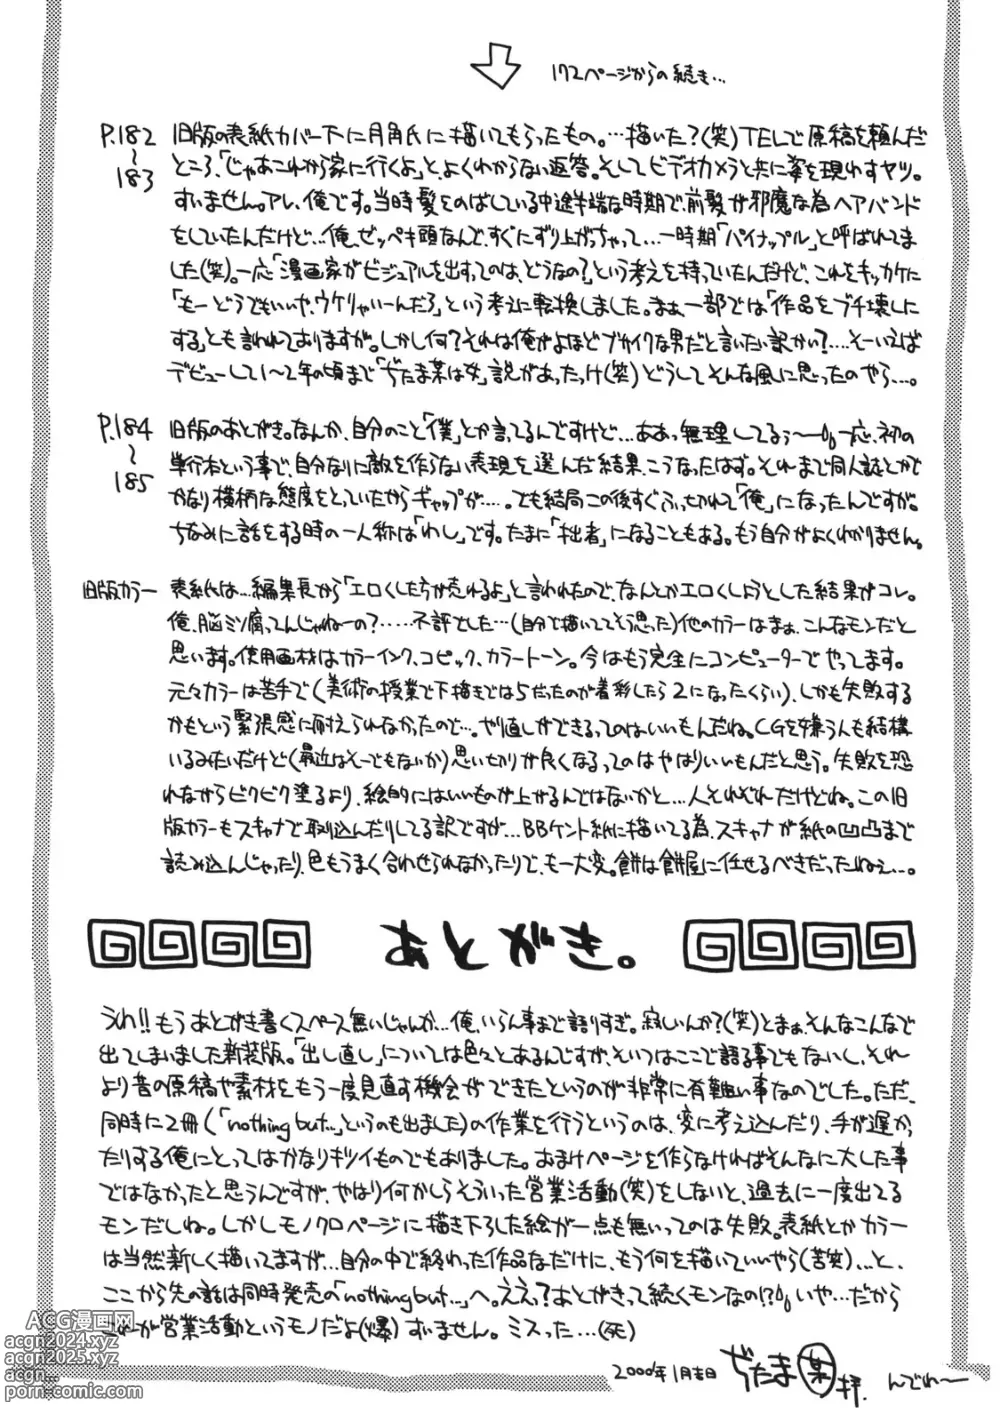 172ページからの続き…
P.182
〜
183
旧版の表紙カバー下に月角氏に描いてもらったもの。…描いた?(笑)TELで原稿を頼んだ
ところ、「じゃあこれから家に行くよ」と、よくわからない返答。そしてビデオカメラと共に姿を現わすヤツ。
すいません。アレ、俺です。当時髪をのばしている中途半端な時期で、前髪が邪魔な為ヘアバンド
をしていたんだけど…俺、ゼッペキ頭なんで、すぐにずり上がっちゃって…一時期「パイナップル」と呼ばれてま
した(笑)。一応「漫画家がビジュアルを出すってのは、どうなの?」という考えを持っていたんだけど、これをキッカケに
「もーどうでもいいや、ウケリゃいーんだろ」という考えに転換しました。まぁ、一部では「作品をブチ壊しに
する」とも言われておりますが。しかし何?それは俺がよほどブサイクな男だと言いたい訳かい?…そーいえば
デビューして1〜2年の頃まで「ぢたま某は女」説があったっけ(笑)どうしてそんな風に思ったのやら…。
P.184
〜
185
旧版のあとがき。なんか、自分のこと「僕」とか言ってるんですけど…ああっ無理してるぅ〜一応、初の
単行本という事で、自分なりに敵を作らない表現を選んだ結果、こうなったはず。それまで同人誌とかで
かなり横柄な態度をとっていたからギャップが…。でも結局この後すぐふっきれて「俺」になったんですが。
ちなみに話をする時の一人称は「わし」です。たまに「拙者」になることもある。もう自分がよくわかりません。
旧版カラー
表紙は…編集長から「エロくした方が売れるよ」と言われたので、なんとかエロくしようとした結果がコレ。
俺、脳ミソ腐ってんじゃねーの?……不評でした…(自分で描いててそう思った)他のカラーはまぁ、こんなモンだと
思います。使用画材はカラーインク、コピック、カラートーン。今はもう完全にコンピューターでやってます。
元々カラーは苦手で(美術の授業で下描きでは5だったのが着彩したら2になったくらい)、しかも失敗する
かもという緊張感に耐えられなかったので…。やり直しができるってのはいいもんだね。CGを嫌う人も結構
いるみたいだけど(最近はそーでもないか)思いきりが良くなるってのはやはりいいもんだと思う。失敗を恐
れながらビクビク塗るより、絵的にはいいものが上がるんではないかと…人それぞれだけどね。この旧
版カラーもスキャナで取り込んだりしてる訳ですが…BBケント紙に描いてる為、スキャナが紙の凹凸まで
読み込んじゃったり、色もうまく合わせられなかったりで、もー大変。餅は餅屋に任せるべきだったねぇ…。
あとがき。
うわ!!もうあとがき書くスペース無いじゃんか…俺、いらん事まで語りすぎ。寂しいんか?(笑)とまぁそんなこんなで
出てしまいました新装版。「出し直し」については色々とあるんですが、そいつはここで語る事でもないし、それ
より昔の原稿や素材をもう一度見直す機会ができたというのが非常に有難い事なのでした。ただ、
同時に2冊(「nothing but…」というのも出ました)の作業を行うというのは、変に考え込んだり、手が遅かっ
たりする俺にとってはかなりキツイものでもありました。おまけページを作らなければそんなに大した事
ではなかったと思うんですが、やはり何かしらそういった営業活動(笑)をしないと、過去に一度出てる
モンだしね。しかしモノクロページに描き下ろした絵が一点も無いってのは失敗。表紙とかカラー
は当然新しく描いてますが…自分の中で終わった作品なだけに、もう何を描いていいやら(苦笑)…と、
ここから先の話は同時発売の「nothing but…」へ。ええ?あとがきって続くモンなの!?いや…だから
が営業活動というモノだよ(爆)すいません。ミスった…(死)
2000年1月吉日 ぢたま某 拝. んでわ〜
ACG漫画网
acgn2024.xyz
acgn2025.xyz
acgn...
porn-comic.com